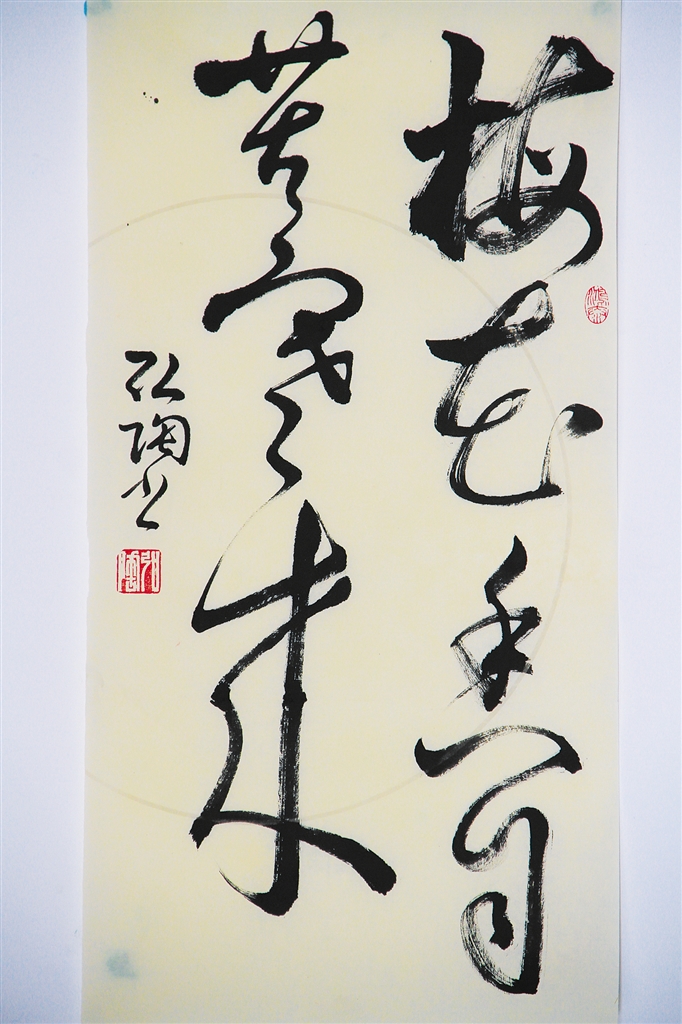 梅花香自
苦寒来
弘陶书
弘陶